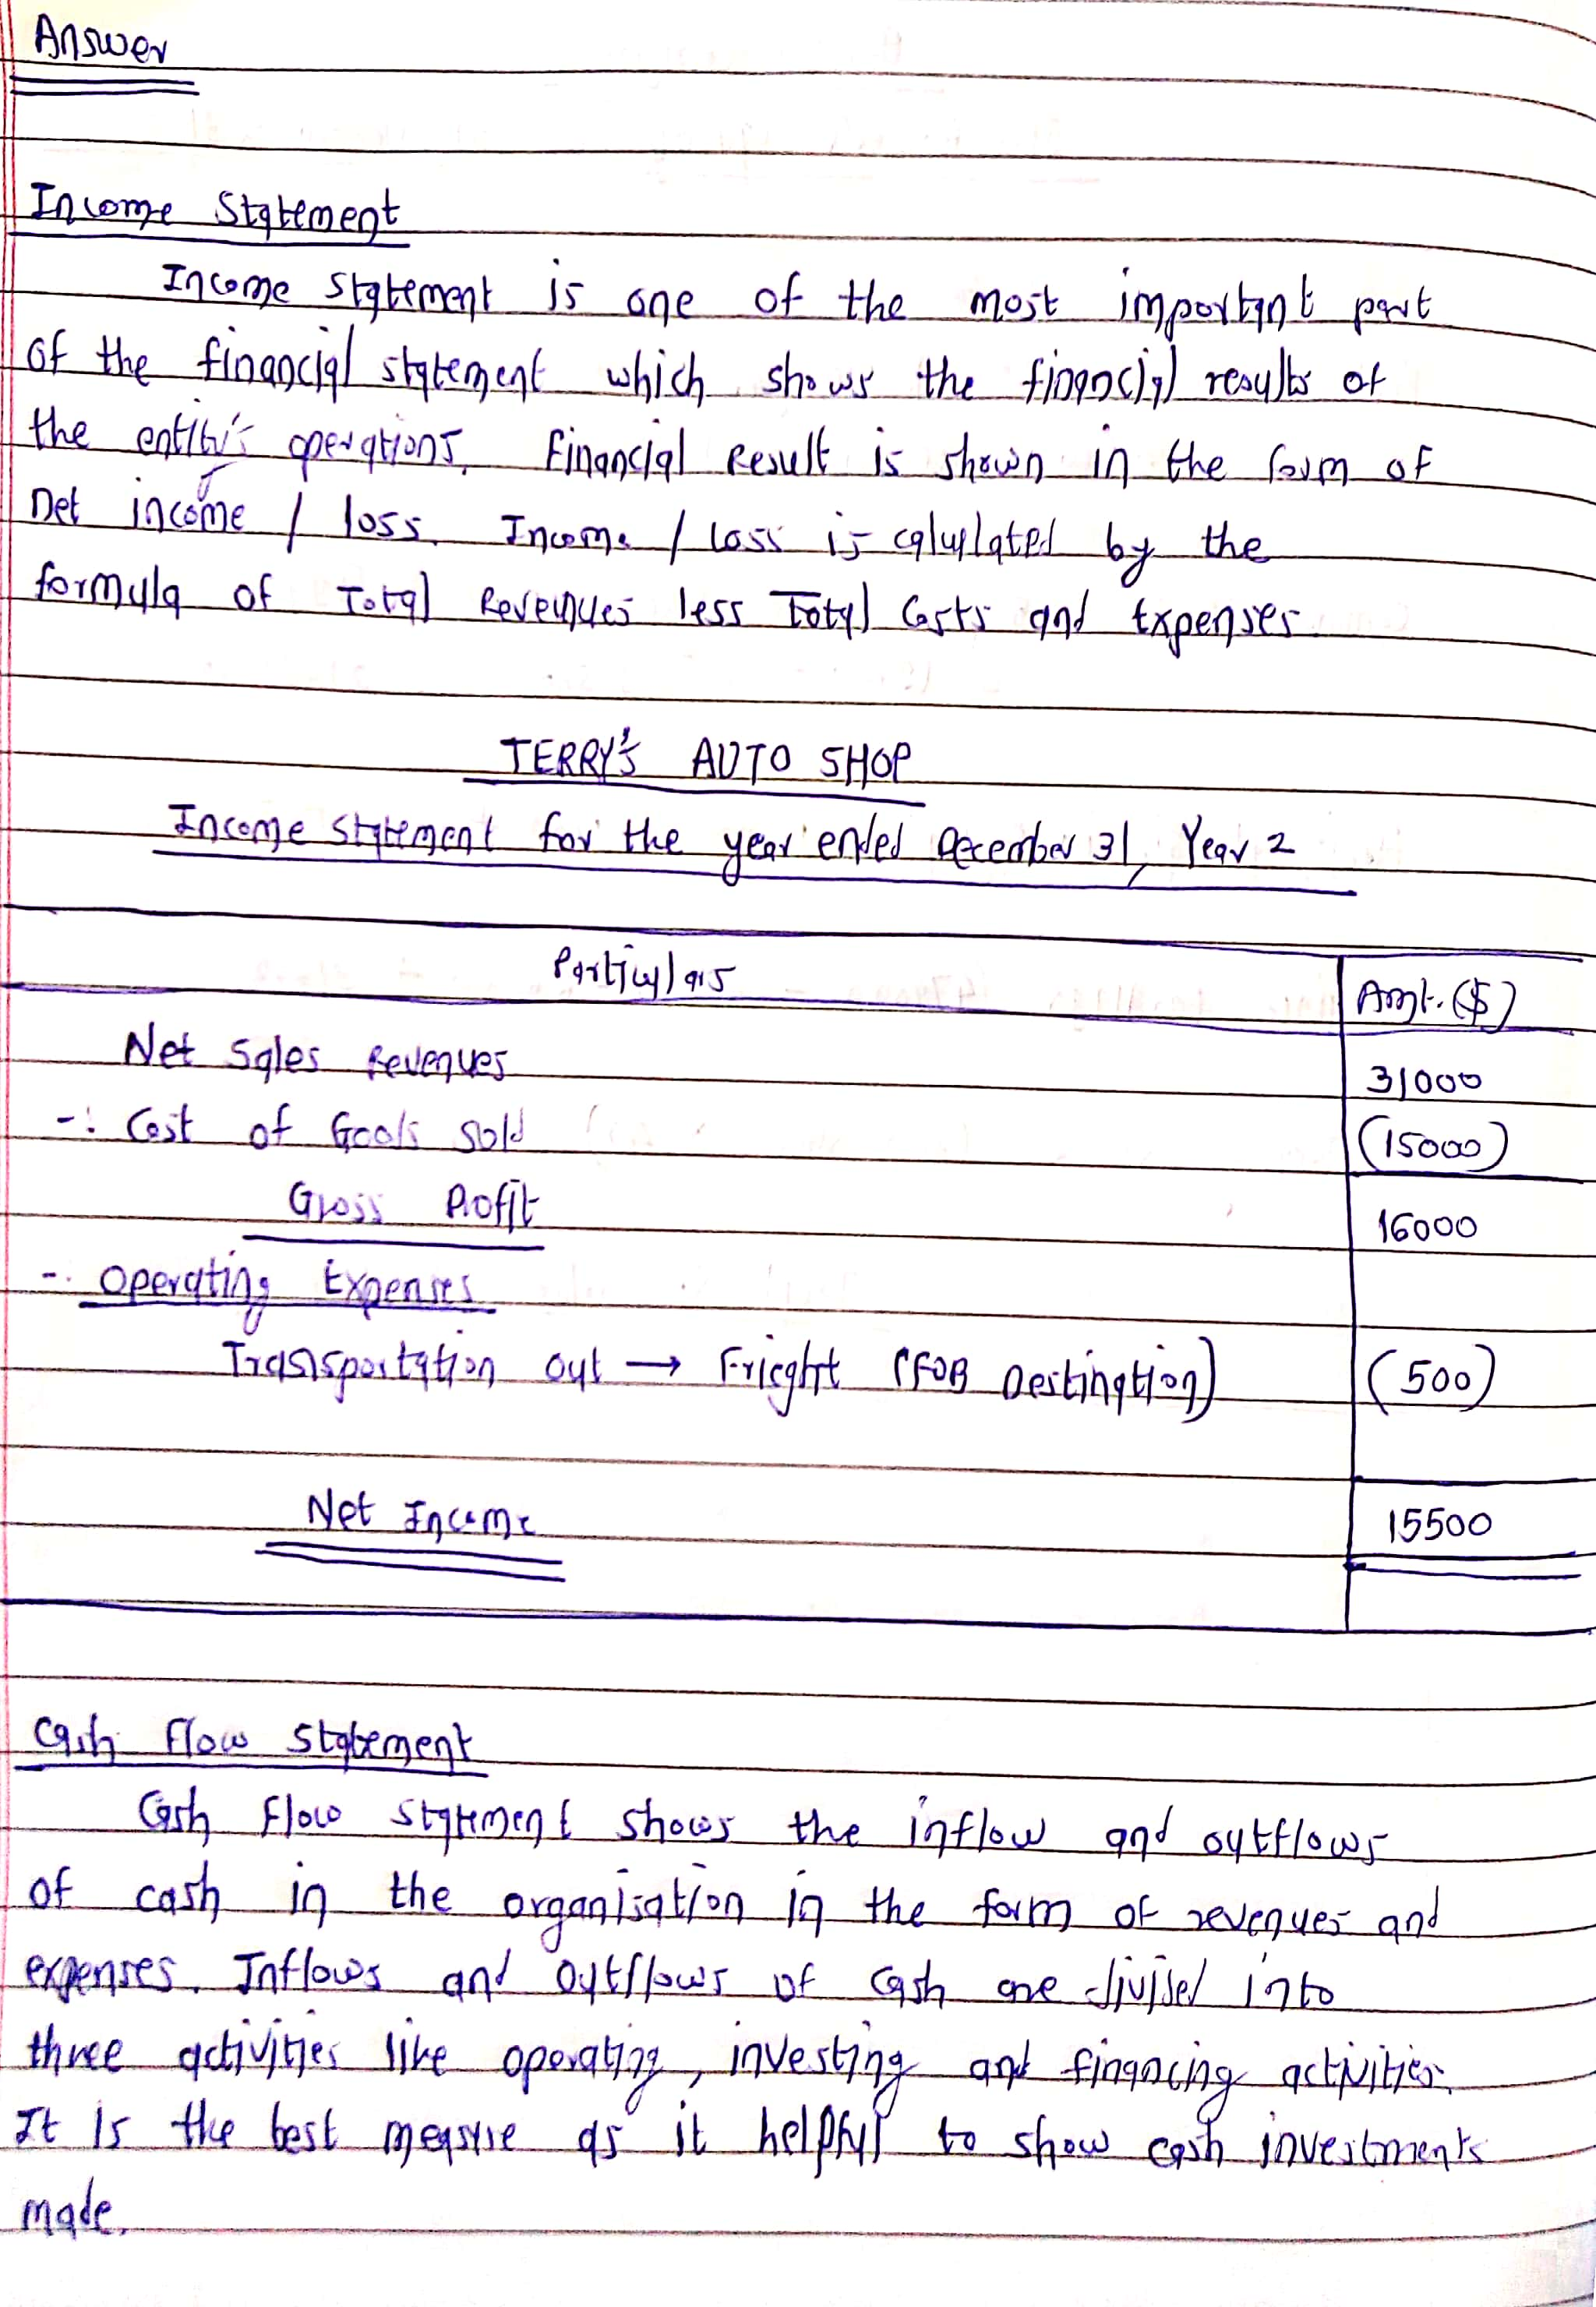 Answer
Income Statement
Income statement is one of the most important part
of the financial statement which shows the financial results of
the entity's operations. Financial Result is shown in the form of
Net income / loss. Income / Loss is calculated by the
formula of Total Revenues less Total Costs and Expenses.
TERRY'S AUTO SHOP
Income Statement for the year ended December 31, Year 2
Particulars Amt. ($)
Net Sales Revenues 31000
-: Cost of Goods Sold (15000)
Gross Profit 16000
-: Operating Expenses
Transportation out → Frieght (FOB Destination) (500)
Net Income 15500
Cash Flow Statement
Cash Flow Statement shows the inflow and outflows
of cash in the organisation in the form of revenues and
expenses. Inflows and Outflows of cash are divided into
three activities like operating, investing and financing activities.
It is the best measure as it helpful to show cash investments
made.